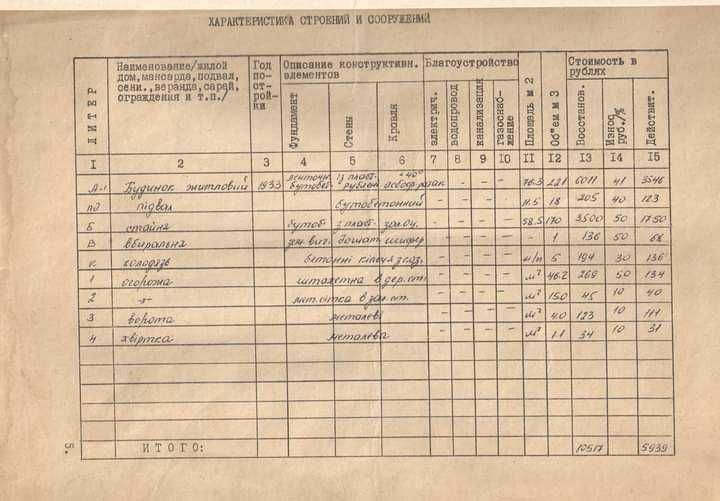 ХАРАКТЕРИСТИКА СТРОЕНИЙ И СООРУЖЕНИЙ
ЛИТЕР
Наименование/жилой дом,мансарда,подвал, сени.,веранда,сарай, ограждения и т.п./
Год по- ст- рой- ки
Описание конструктивн. элементов
Фундамент Стены Кровля
Благоустройство
электрич. водопровод канализация газоснаб- жение
Площадь м 2
Об"ем м 3
Стоимость в рублях
Восстанов. Износ руб./% Действит.
I 2 3 4 5 6 7 8 9 I0 II I2 I3 I4 I5
А-1 Будинок житловий 1933 бутобет. рублен - - - 76.3 221 6011 41 3546
пд підвал бутобетонний - - - 11.5 18 205 40 123
Б стайна бутоб. з пласт. - - - 58.5 170 3500 50 1750
В вбиральня дощат. шифер - - - - 1 136 50 68
К колодязь бетонні кільця - - - м/п 5 194 30 136
1 огорожа штахетна в дер.ст. - - - м² 46.2 269 50 134
2 -"- мет.сітка в зал.ст. - - - м² 15.0 45 10 40
3 ворота металеві - - - - м² 4.0 123 10 111
4 хвіртка металева - - - - м² 1.1 34 10 31
5.
ИТОГО: 10517 5939